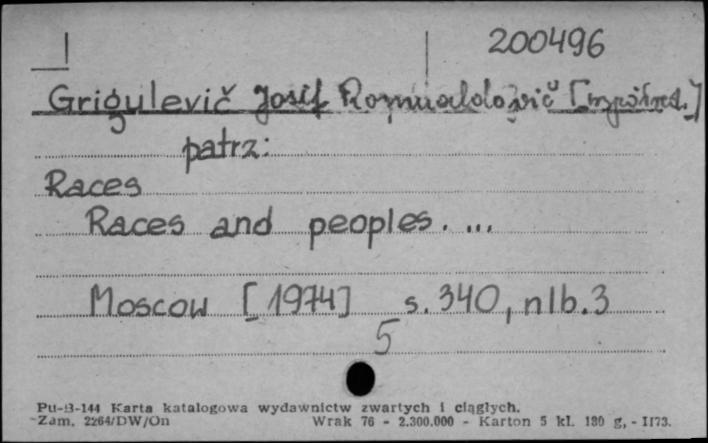 200496
Grigulevič Josif Romualdovič [współred.]
patrz:
Races
Races and peoples. ...
Moscow [1974] s. 340, nlb. 3
5
Pu-B-144 Karta katalogowa wydawnictw zwartych i ciągłych.
Zam. 2264/DW/On Wrak 76 - 2.300.000 - Karton 5 kl. 180 g, - II73.